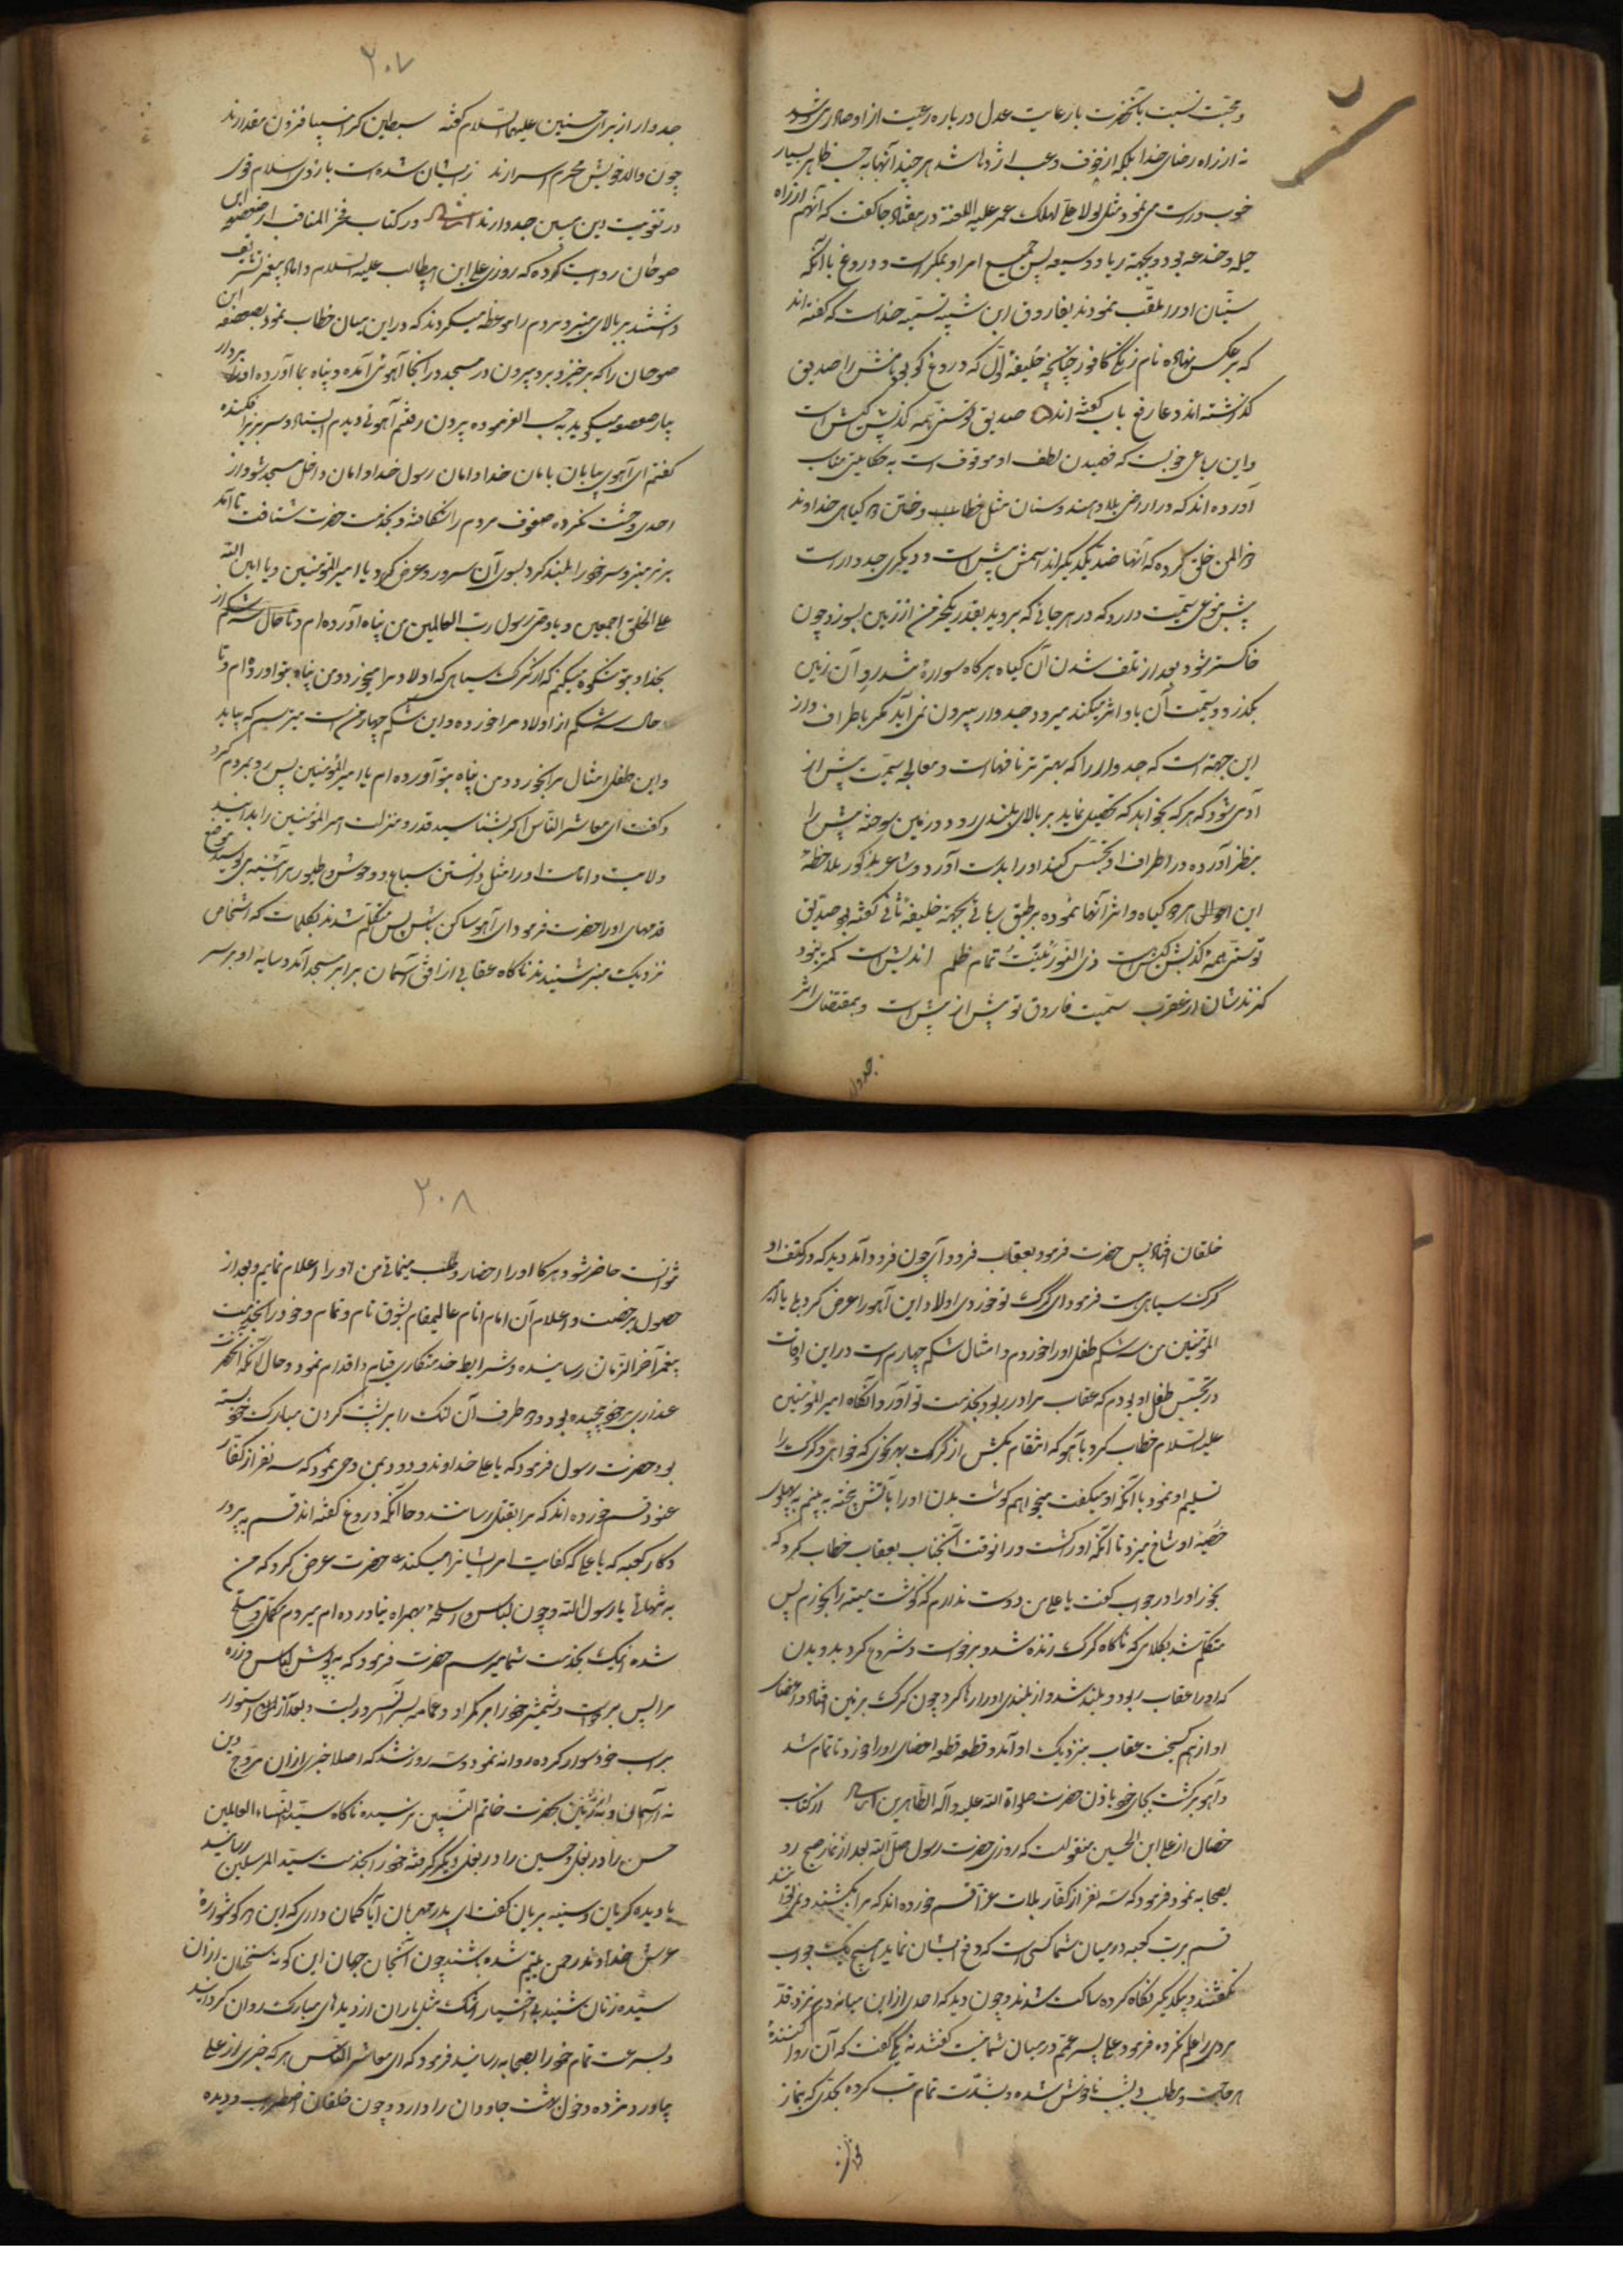 و محبّت نسبت بآنحضرت با رعایت عدل در باره رعیت از او صادر می شود
نه از راه رضای خدا بلکه از خوف و عب اژدها شد هر چند آنها بحسب ظاهر بسیار
خوب و درست می نمود مثل لولا علی لهلک عمر علیه اللعنة در هفتاد جا گفت که آنهم از راه
حیله و خدعه بود و بجهة ریا و وسیعه پس جمیع امر او بمکر است و دروغ با آنکه
سنّیان او را ملقّب نمودند بفاروق این شبیه تسمیه ضد است که گفته اند
که بر عکس نهاده نام زنگی کافور چنانچه خلیفهٔ اوّل که دروغ گو بود نامش را صدیق
گذاشته اند و عارفی باب گفته اند صدیق تو سنّی همه کذبش کیش است
و این رباعی خوبست که فهمیدن لطف او موقوف است به حکایتی مناسب
آورده اند که در اراضی بلاد هندوستان مثل خطا و ختن دو گیاهی خداوند
ذو المن خلق کرده که آنها ضد یکدیگراند اسمش بیش است و دیگری جدوار است
بیش نوعی سمّیت دارد که در هر جائی که بروید بقدر یکخرمن از زمین بسوزد و چون
خاکستر شود بعد از تلف شدن آن گیاه هرگاه سواره شد رو آن زمین
بگذرد و سمّیت آن باو اثر میکند میرد و جدوار بیرون نمی آید مگر باطراف و از
این جهة است که جدوار را که بهترتر یاقهاست و معالجه سمّیت بیش از
آدمی شود که هر که بخواهد که تحصیل نماید بر بالای بلندی رود و زمین سوخته بیش را
بنظر آورده در اطراف او تجسّس کند او را بدست آورد و شاعر مذکور بملاحظهٔ
این احوالی هر دو گیاه و اثر آنها نموده بر طبق رباعی بجهة خلیفه ثانی گفته بود صدیق
تو سنّی همه کذبش کیش است ذی النّورینت تمام ظلم اندیش است کمتر نبود
گزندشان از عقرب سمّیت فاروق تو بیش از بیش است و بمقتضای اثر
جدوار
۲۰۷
جدوار از برای حسنین علیهما السّلام گفته سبطین که از انبیا فزون مقدارند
چون والد خویش محرم اسرارند ز ایشان شده است بازوی اسلام قوی
در تقویت دین مبین جدوارند ایضا در کتاب فخر المناقب از صعصعه ابن
صوحان روایت کرده که روزی علی ابن ابیطالب علیه السّلام داماد پیغمبر تشریف
داشتند بر بالای منبر و مردم را موعظه میکردند که در این میان خطاب نمود بصعصعه ابن
صوحان را که برخیز و برو بیرون در مسجد در آنجا آهوئی آمده و پناه بما آورده او را بردار
بیار صعصعه میگوید به حسب الفرموده بیرون رفتم آهوئی دیدم ایستاده و سر بزیر افکنده
گفتم ای آهوی بیابان بامان خدا و امان رسول خدا و امان داخل مسجد شو و از
احدی وحشت نکرده صفوف مردم را شکافته و بخدمت حضرت شتافت تا آمد
بر زیر منبر و سر خود را بلند کرد بسوی آن سرور و عرض کرد یا امیر المؤمنین و یا امین الله
علی الخلق اجمعین و یا وصی رسول ربّ العالمین من پناه آورده ام و تا حال سه شکم از
بخدا و بتو شکوه میکنم که از گرگ سیاهی که اولاد مرا میخورد و من پناه بتو آورده ام و تا
حال سه شکم از اولاد مرا خورده و این شکم چهارمین است میترسم که بیاید
و این طفل امثال مرا بخورد و من پناه بتو آورده ام یا امیر المؤمنین پس رو بمردم کرد
و گفت ای معاشر النّاس اگر بشناسید قدر و منزلت امیر المؤمنین را بدانید
ولایت و امامت او را مثل دانستن سباع و وحوش و طیور هر آئینه می بوسیدید موضع
قدمهای او را حضرت فرمود ای آهو ساکن باش پس متکلّم شدند بکلمات که اشخاص
نزدیک منبر شنیدند ناگاه عقابی از افق آسمان برابر مسجد آمد و سایه او بر سر
خلقان افتاد پس حضرت فرمود بعقاب فرود آی چون فرود آمد دید که در کتف او
گرگ سیاهیست فرمود ای گرگ تو خوردی اولاد این آهو را عرض کرد بلی یا امیر
المؤمنین من سه شکم طفل او را خوردم و امثال شکم چهارم است در این اوقات
در تجسّس طفل او بودم که عقاب مرا در ربود بخدمت تو آورد و آنگاه امیر المؤمنین
علیه السّلام خطاب کرد بآهو که انتقام بکش از گرگ بهر نحوی که خواهی و گرگ را
تسلیم او نمود با آنکه او میگفت میخواهم گوشت بدن او را بآتش پخته به بینم به پهلوی
خصیهٔ او شاخ میزد تا آنکه او را کشت در آنوقت آنجناب بعقاب خطاب کرد که
بخور او را در جواب گفت یا علی من دوست ندارم که گوشت میته را بخورم پس
متکلّم شد بکلامی که ناگاه گرگ زنده شد و برخواست و شروع کرد بدویدن
که او را عقاب ربود و بلند شد و از بلندی او را رها کرد چون گرگ بر زمین افتاد و اعضای
او از هم گسیخت عقاب بنزدیک او آمد و قطعه قطعه اعضای او را خورد تا تمام شد
و آهو برگشت بجای خود باذن حضرت صلوة الله علیه و آله الطّاهرین ایضا از کتاب
خصال از علی ابن الحسین منقولست که روزی حضرت رسول صلّی الله بعد از نماز صبح رو
بصحابه نمود فرمود که سه نفر از کفّار بلات عزّا قسم خورده اند که مرا بکشند
قسم بربّ کعبه در میان شما کسی است که دفع ایشان نماید هیچ یک جواب
نگفتند و بیکدیگر نگاه کرده ساکت شدند و چون دید که احدی از این میانه دم نزد قدّ
مردی را علم نکرده فرمود علی پسر عمّم در میان شما نیست گفتند نه یکی گفت که آن روا کنندهٔ
هر حاجت و مطلب دیشب ناخوش شده و بشدّت تمام تب کرده بحدّی که بنماز
۲۰۸
نتوانست حاضر شود هرگاه او را احضار و طلب مینمائی من او را اعلام نمایم و بعد از
حصول مرخصت و اعلام آن امام انام عالیمقام بشوق تام و تمام و خود را بخدمت
پیغمبر آخر الزّمان رسانیده و شرایط خدمتکاری قیام و اقدام نمود و حال آنکه آنحضرت
بر خود پیچیده بود و دو طرف آن لنگ را بر پشت گردن مبارک خود بسته
بود حضرت رسول فرمود که یا علی خداوند ودود بمن وحی نمود که سه نفر از کفّار
عنود قسم خورده اند که مرا بقتل رسانند و حال آنکه دروغ گفته اند قسم به پرور
دگار کعبه که یا علی که کفایت امر ایشانرا میکند حضرت عرض کرد که من
به تنهائی یا رسول الله و چون لباس و اسلحه بهمراه نیاورده ام میروم مکمّل و مسلّح
شده اینک بخدمت شما میرسم حضرت فرمود که به پوش لباس و زره
مرا پس و شمشیر خود را بر کمر او و عمامه بسر آنسرور بست و بعد از آن استوار
بر اسب خود سوار کرده روانه نمود و سه روز شد که اصلا خبری از ان مروّج دین
نه از آسمان و نه از زمین بحضرت خاتم النّبیّین نرسیده ناگاه سیّدة النّساء العالمین
حسن را در بغل و حسین را در بغل دیگر گرفته خود را بخدمت سیّد المرسلین رسانید
با دیده گریان و سینه بریان گفت ای پدر مهربان آیا گمان داری که این دو گوشوارهٔ
عرش خداوند رحمن یتیم شده باشند چون آنجان جهان این گونه سخنان از ان
سیّده زنان شنید بی اختیار اشک مثل باران از دیدهای مبارک روان گردانید
و بسرعت تمام خود را بصحابه رسانید فرمود که ای معاشر النّاس هر که خبری از علی
بیاورد مژده دخول بهشت جاودان را دارد و چون خلقان اضطراب و دیده